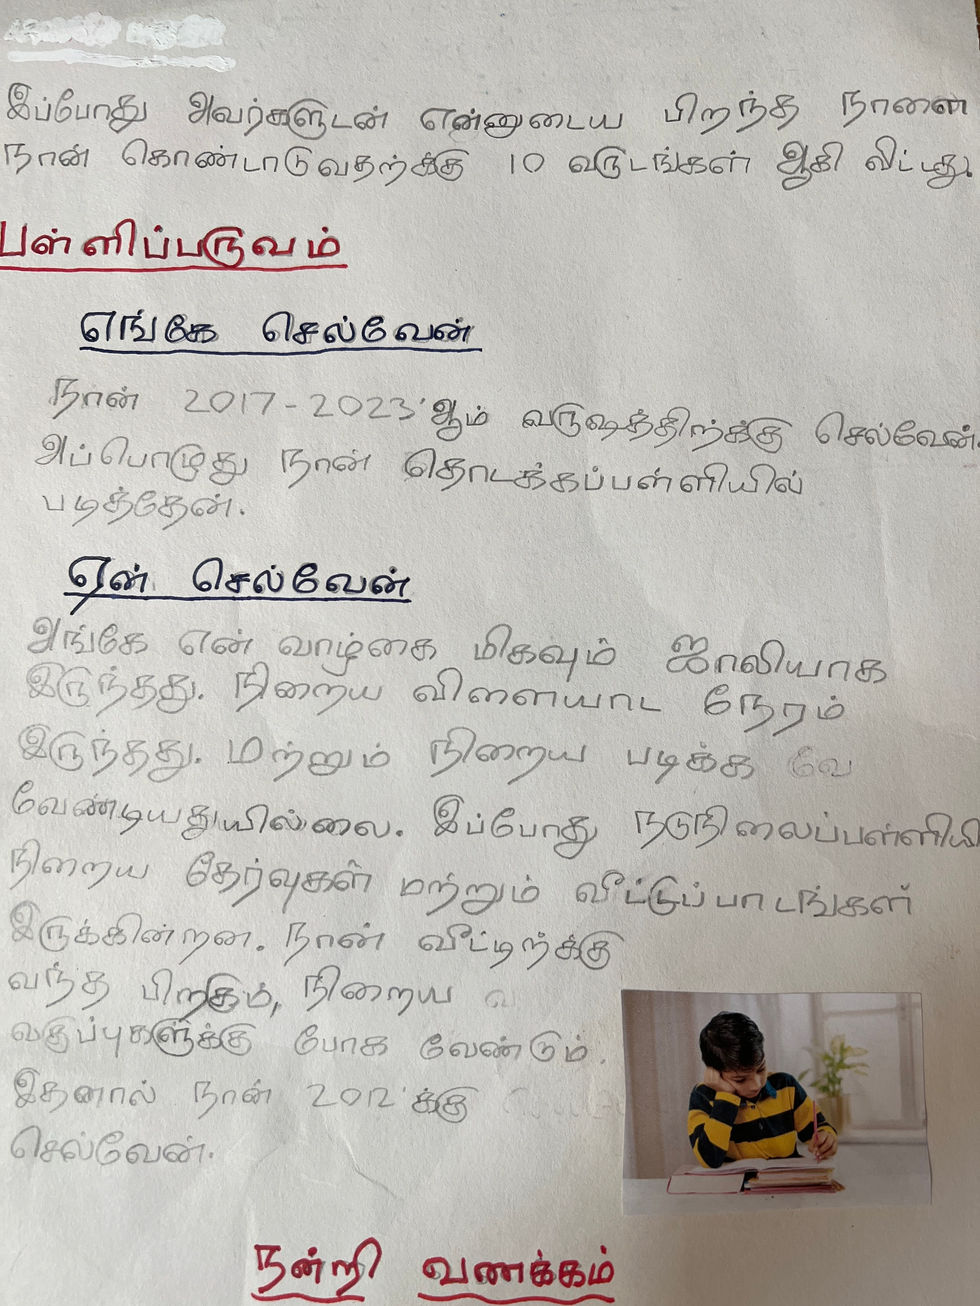 இப்போது அவர்களுடன் என்னுடைய பிறந்த நாளை
நான் கொண்டாடுவதற்க்கு 10 வருடங்கள் ஆகி விட்டது.
பள்ளிப்பருவம்
எங்கே செல்வேன்
நான் 2017-2023'ஆம் வருஷத்திற்க்கு செல்வேன்.
அப்பொழுது நான் தொடக்கப்பள்ளியில்
படித்தேன்.
ஏன் செல்வேன்
அங்கே என் வாழ்கை மிகவும் ஜாலியாக
இருந்தது. நிறைய விளையாட நேரம்
இருந்தது. மற்றும் நிறைய படிக்க வே
வேண்டியதுயில்லை. இப்போது நடுநிலைப்பள்ளியி
நிறைய தேர்வுகள் மற்றும் வீட்டுப்பாடங்கள்
இருக்கின்றன. நான் வீட்டிற்க்கு
வந்த பிறகும், நிறைய வ
வகுப்புகளுக்கு போக வேண்டும்.
இதனால் நான் 2012'க்கு
செல்வேன்.
நன்றி வணக்கம்